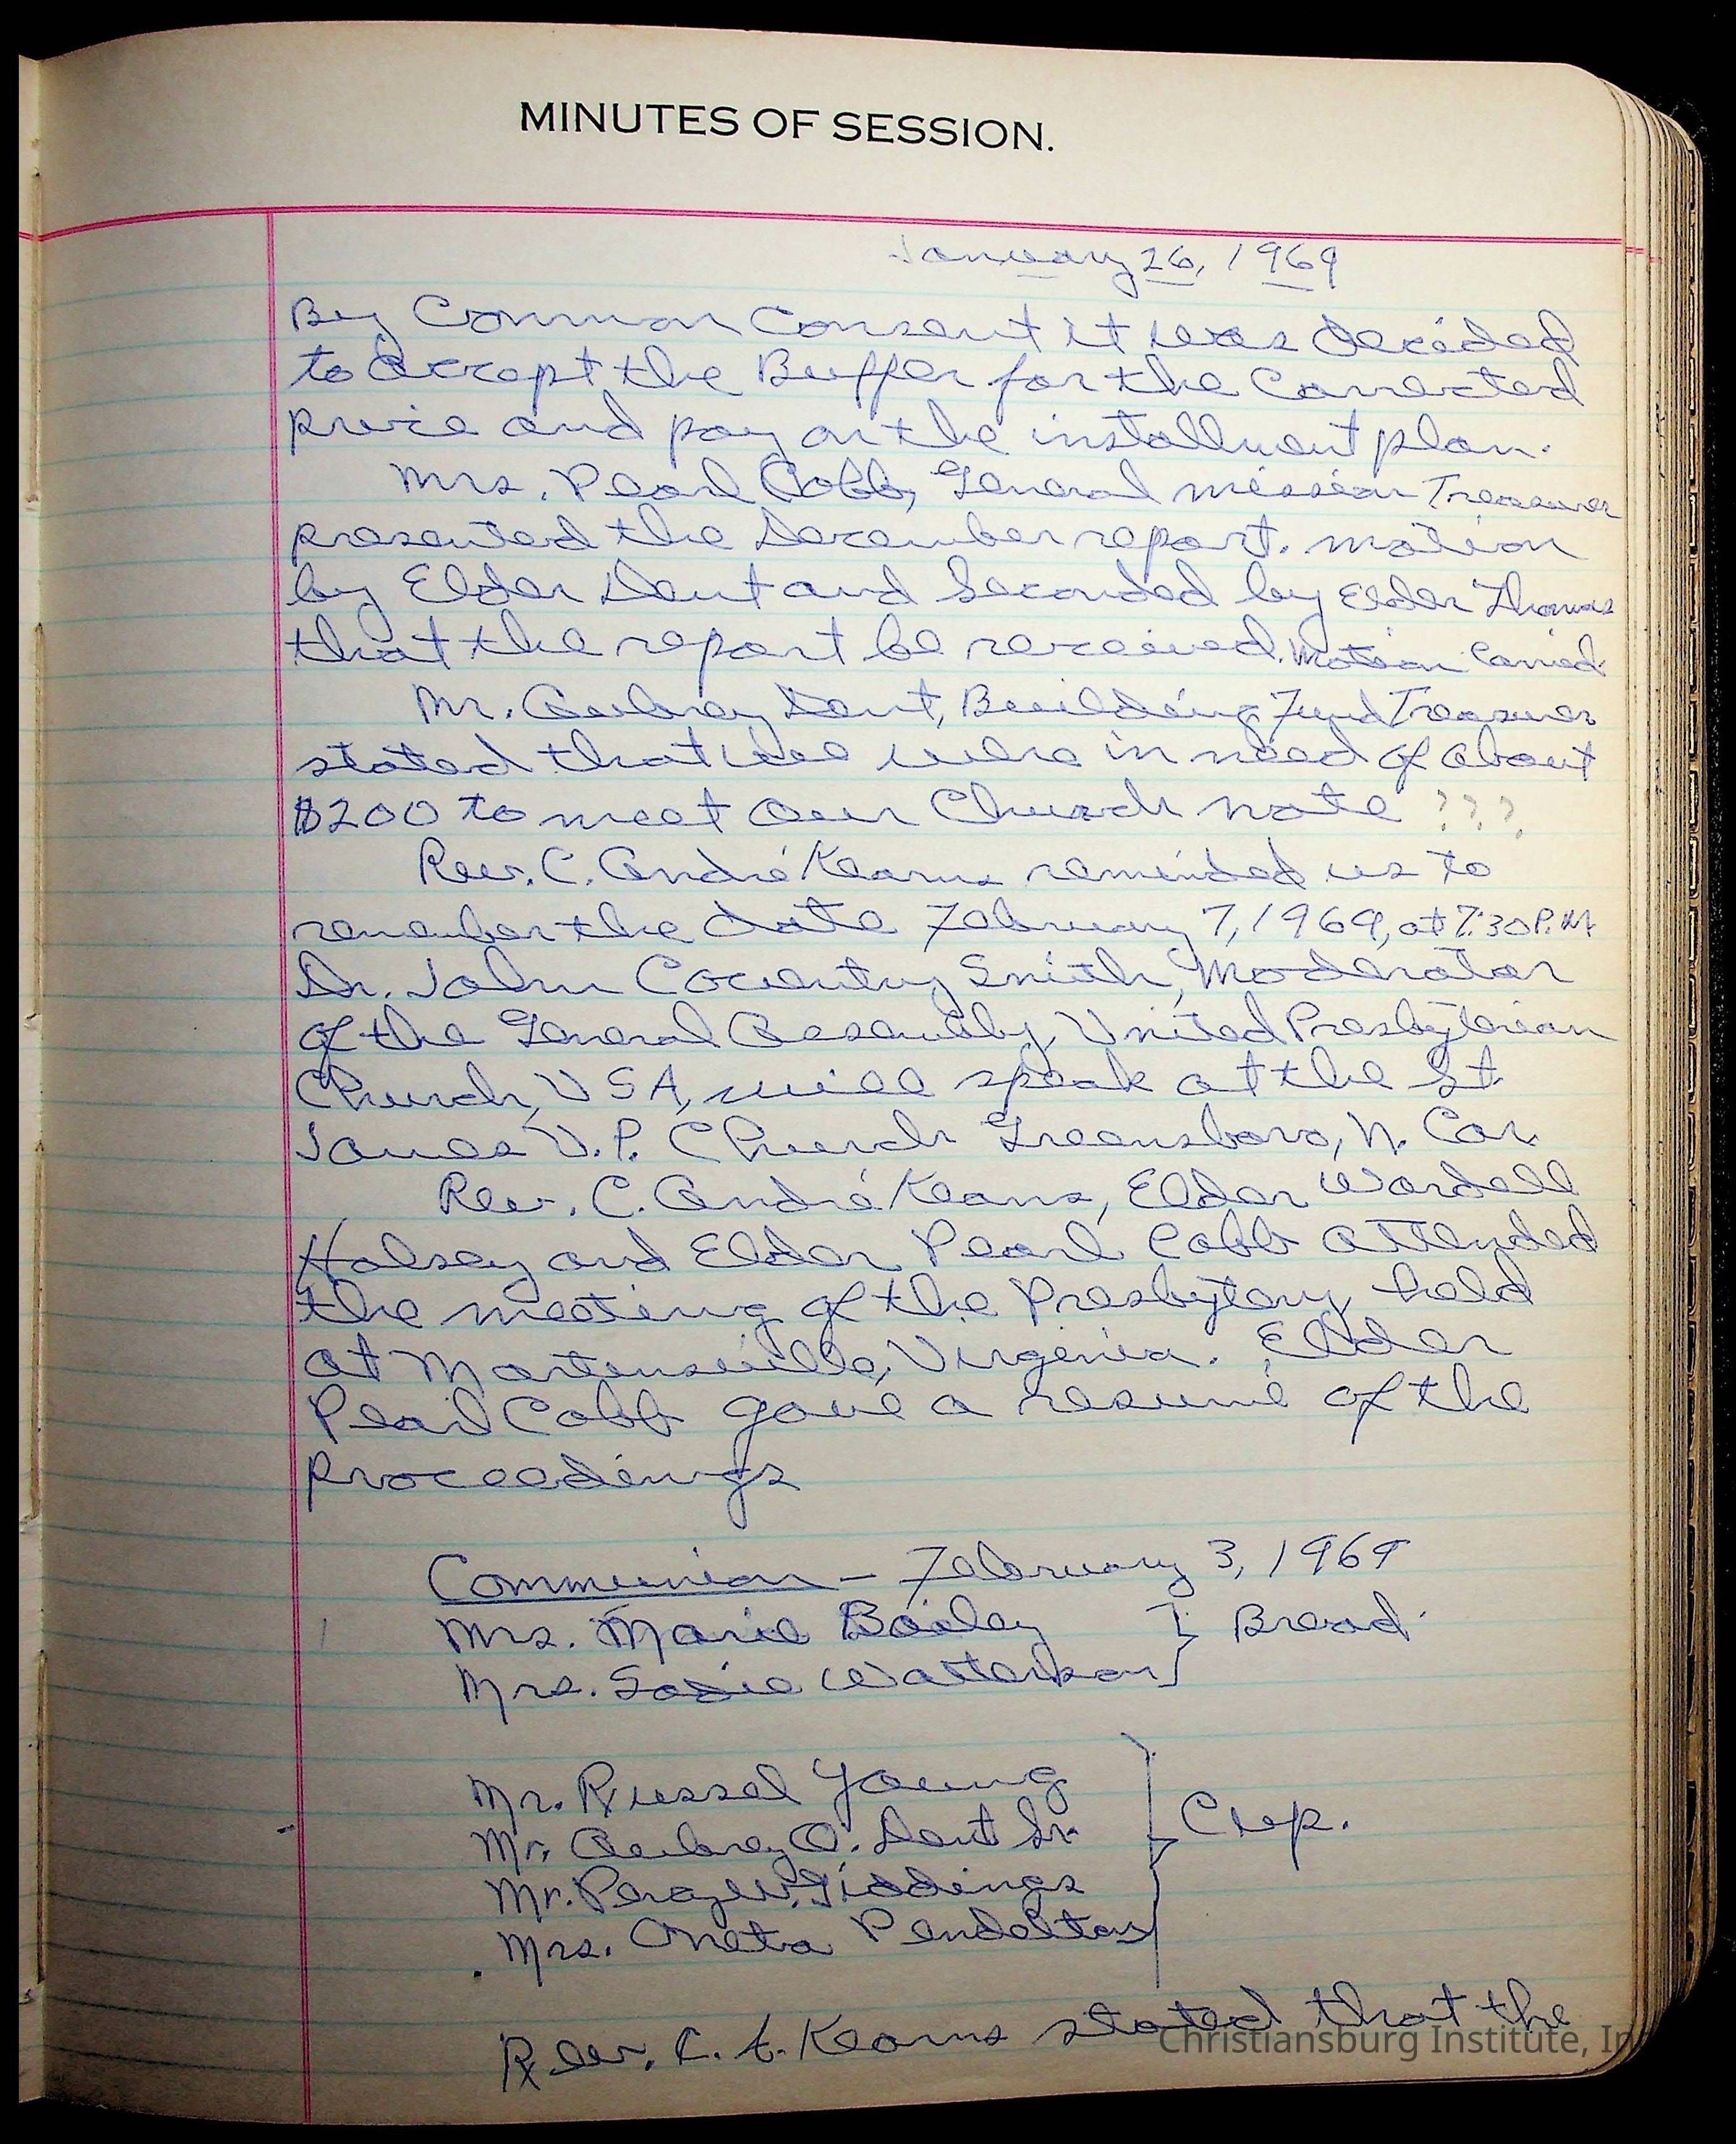 MINUTES OF SESSION.
January 26, 1969
By Common Consent it was decided
to accept the Buffer for the Corrected
price and pay on the installment plan.
Mrs. Pearl Cobb, General mission Treasurer
presented the December report. motion
by Elder Dent and Seconded by Elder Thomas
that the report be received. Motion Carried.
Mr. Aubrey Dent, Building Fund Treasurer
stated that we were in need of about
$200 to meet our Church note ???
Rev. C. André Kearns reminded us to
remember the date February 7, 1969, at 7:30 P.M.
Dr. John Coventry Smith, Moderator
of the General Assembly, United Presbyterian
Church, USA, will speak at the St.
James U.P. Church Greensboro, N. Car.
Rev. C. André Kearns, Elder Wardell
Halsey and Elder Pearl Cobb attended
the meeting of the Presbytery held
at Martensville, Virginia. Elder
Pearl Cobb gave a resumé of the
proceedings
Communion - February 3, 1969
Mrs. Marie Bailey } Bread
Mrs. Sadie Watterson
Mr. Russel Young
Mr. Aubrey O. Dent Sr. } Cup.
Mr. Percy W. Giddings
Mrs. Oneta Pendelton
Rev. C. A. Kearns stated that the
Christiansburg Institute, In